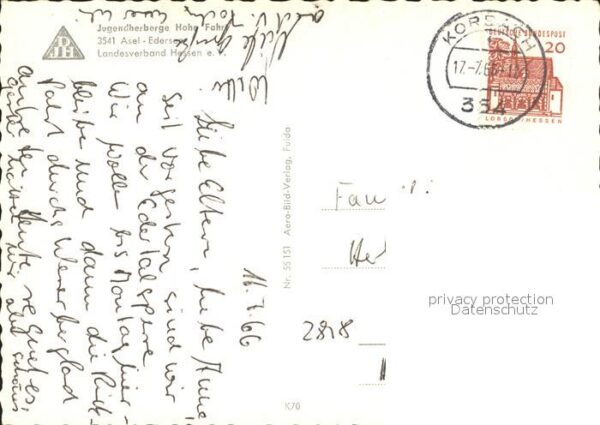 Jugendherberge Hohe Fahrt
3541 Asel - Edersee
Landesverband Hessen e. V.
DJH
KORBACH
17.-7.66
354
DEUTSCHE BUNDESPOST
20
LORSCH/HESSEN
16.7.66
Liebe Eltern, liebe Anne,
seit vorgestern sind wir
an der Edertalsperre.
Wir wollen bis Montag hier
bleiben und dann die Rück-
fahrt durchs Weserbergland
antreten. Heute regnet es,
Viele Grüße
Nr. 55 151 Aero-Bild-Verlag, Fulda
Fam
2818
K70
privacy protection
Datenschutz